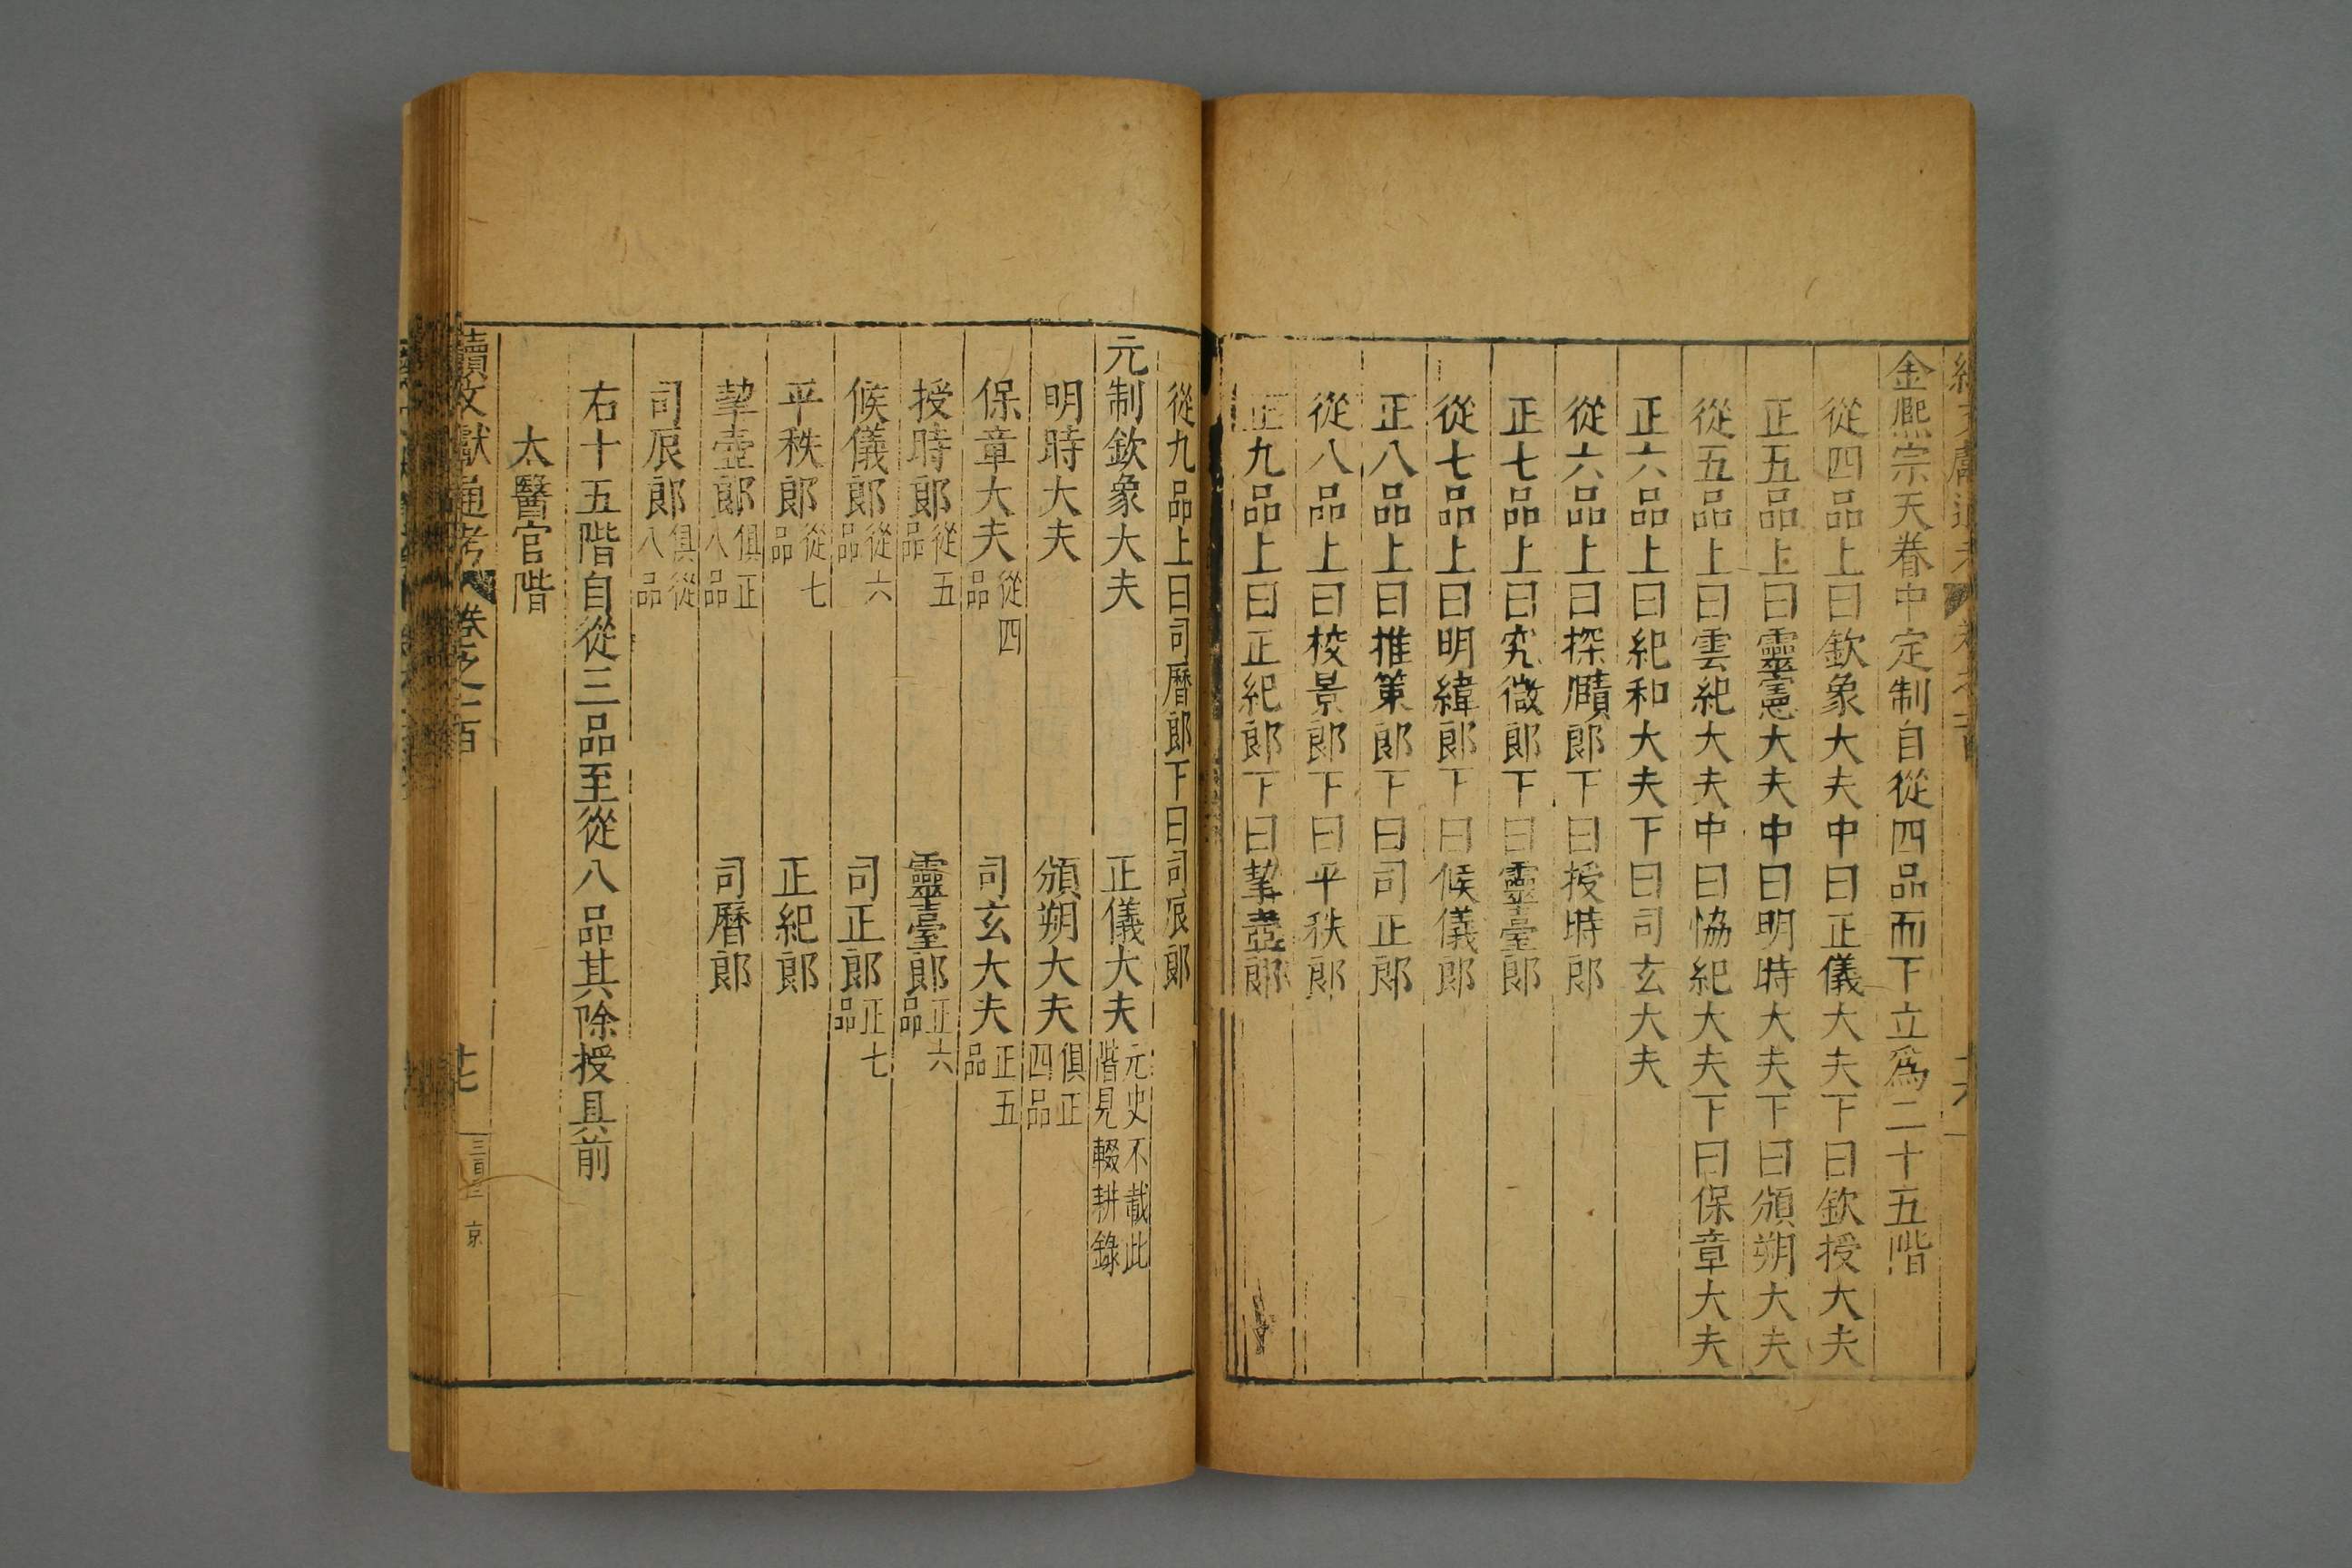 金熈宗天眷中定制自從四品而下立爲二十五階
從四品上曰欽象大夫中曰正儀大夫下曰欽授大夫
正五品上曰靈憲大夫中曰明時大夫下曰頒朔大夫
從五品上曰雲紀大夫中曰恊紀大夫下曰保章大夫
正六品上曰紀和大夫下曰司玄大夫
從六品上曰探賾郎下曰授時郎
正七品上曰究微郎下曰靈臺郎
從七品上曰明緯郎下曰候儀郎
正八品上曰推策郎下曰司正郎
從八品上曰校景郎下曰平秩郎
正九品上曰正紀郎下曰挈壺郎
從九品上曰司曆郎下曰司辰郎
元制欽象大夫 正儀大夫 元史不載此階見輟耕錄
明時大夫 頒朔大夫 俱正四品
保章大夫 從四品 司玄大夫 正五品
授時郎 從五品 靈臺郎 正六品
候儀郎 從六品 司正郎 正七品
平秩郎 從七品 正紀郎
挈壺郎 俱正八品 司曆郎
司辰郎 俱從八品
右十五階自從三品至從八品其除授具前
太醫官階
續文獻通考 卷之一百 廿七 三百 京